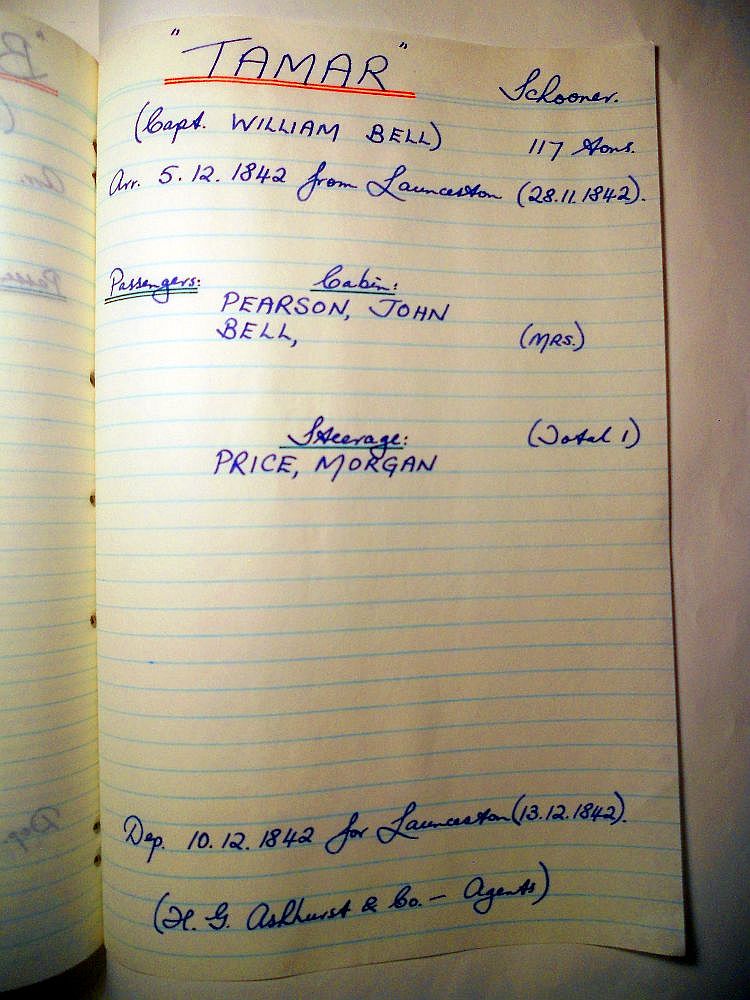 "TAMAR" Schooner.
(Capt. WILLIAM BELL) 117 Tons.
Arr. 5.12.1842 from Launceston (28.11.1842).
Passengers: Cabin:
PEARSON, JOHN
BELL, (MRS.)
Steerage: (Total 1)
PRICE, MORGAN
Dep. 10.12.1842 for Launceston (13.12.1842).
(H. G. Ashhurst & Co. — Agents)